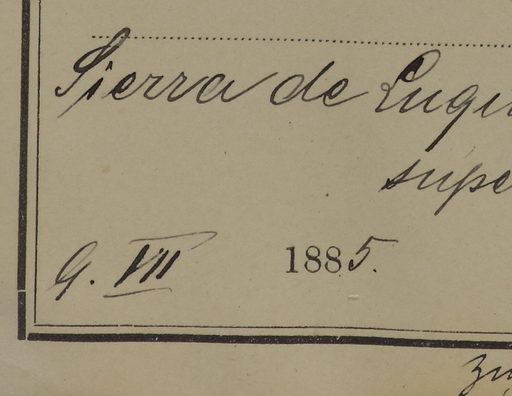 Sierra de Luqui
supe
9. VII 1885.
zu